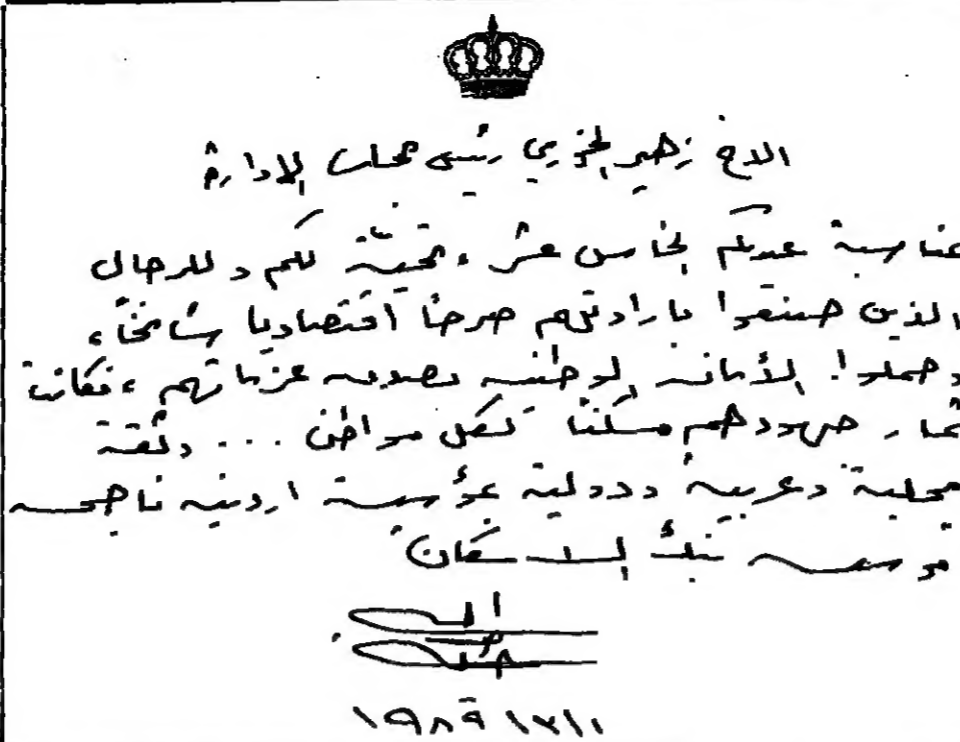 الاخ زهير الخوري رئيس مجلس الإدارة
بمناسبة عيدكم الخامس عشر ، تحية لكم وللرجال
الذين صنعوا بارادتهم صرحاً اقتصاديا شامخاً ،
وحملوا الأمانة الوطنية بصدق عزيماتهم ، فكانت
ثمار جهودهم مسكناً لكل مواطن ... وثقة
محلية وعربية ودولية بمؤسسة اردنية ناجحة
مؤسسة بنك الاسكان